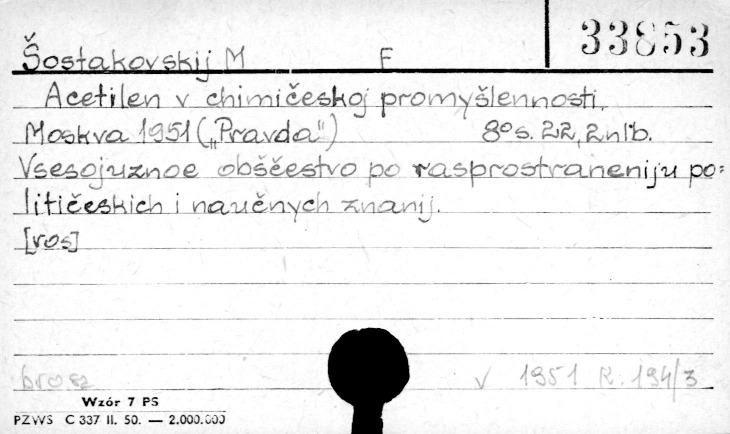 33853
Šostakovskij M F
Acetilen v chimičeskoj promyšlennosti.
Moskva 1951 („Pravda") 8° s. 22, 2 nlb.
Vsesojuznoe obščestvo po rasprostraneniju po=
litičeskich i naučnych znanij.
[ros]
brosz v 1951 R. 194/3
Wzór 7 PS
PZWS C 337 II. 50. — 2.000.000